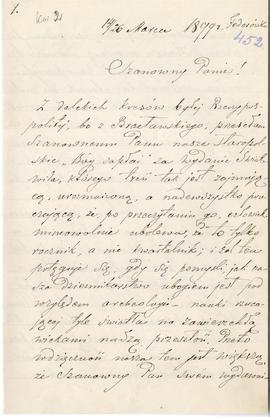 1.
14/26 Marca 1879 r. Fedorówka
452
Szanowny Panie!
Z dalekich kresów byłej Rzeczypos-
politej, bo z Bracławskiego, przesyłam
Szanownemu Panu nasze staropol-
skie „Bóg zapłać" za wydanie
którego treść tak jest zajmują-
cą, urozmaiconą, a nadewszystko po-
uczającą, że, po przeczytaniu go, człowiek
mimowolnie ubolewa, że to tylko
rocznik, a nie kwartalnik; i żal ten
potęguje się, gdy się pomyśli jak na-
sze Dziennikarstwo ubogiem jest pod
względem archeologii – nauki rzuca-
jącej tyle światła na
wiekami naszą przeszłość. Przeto
wdzięczność nasza tem jest większą,
że Szanowny Pan swem wydawni-